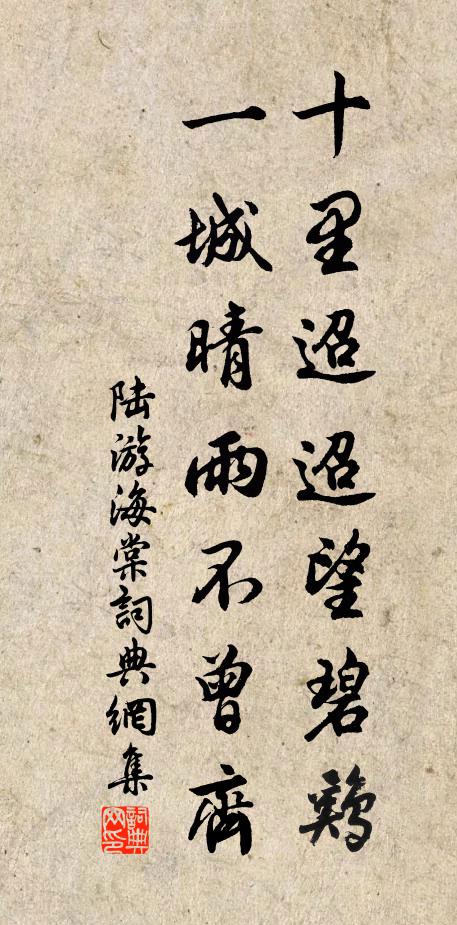 十里迢迢望碧鷄
一城晴雨不曾齊
陆游海棠詞典網集
詞典網印